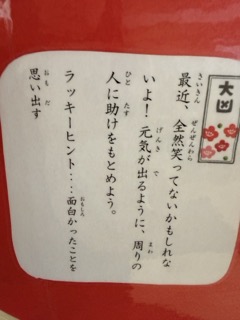 大凶
最近、全然笑ってないかもしれな
いよ！元気が出るように、周りの
人に助けをもとめよう。
ラッキーヒント‥‥面白かったことを
思い出す